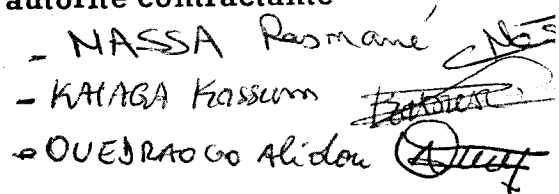 autorité contractante
- NASSA Rasmané
- KAIAGA Kassum
- OUEDRAOGO Alidou